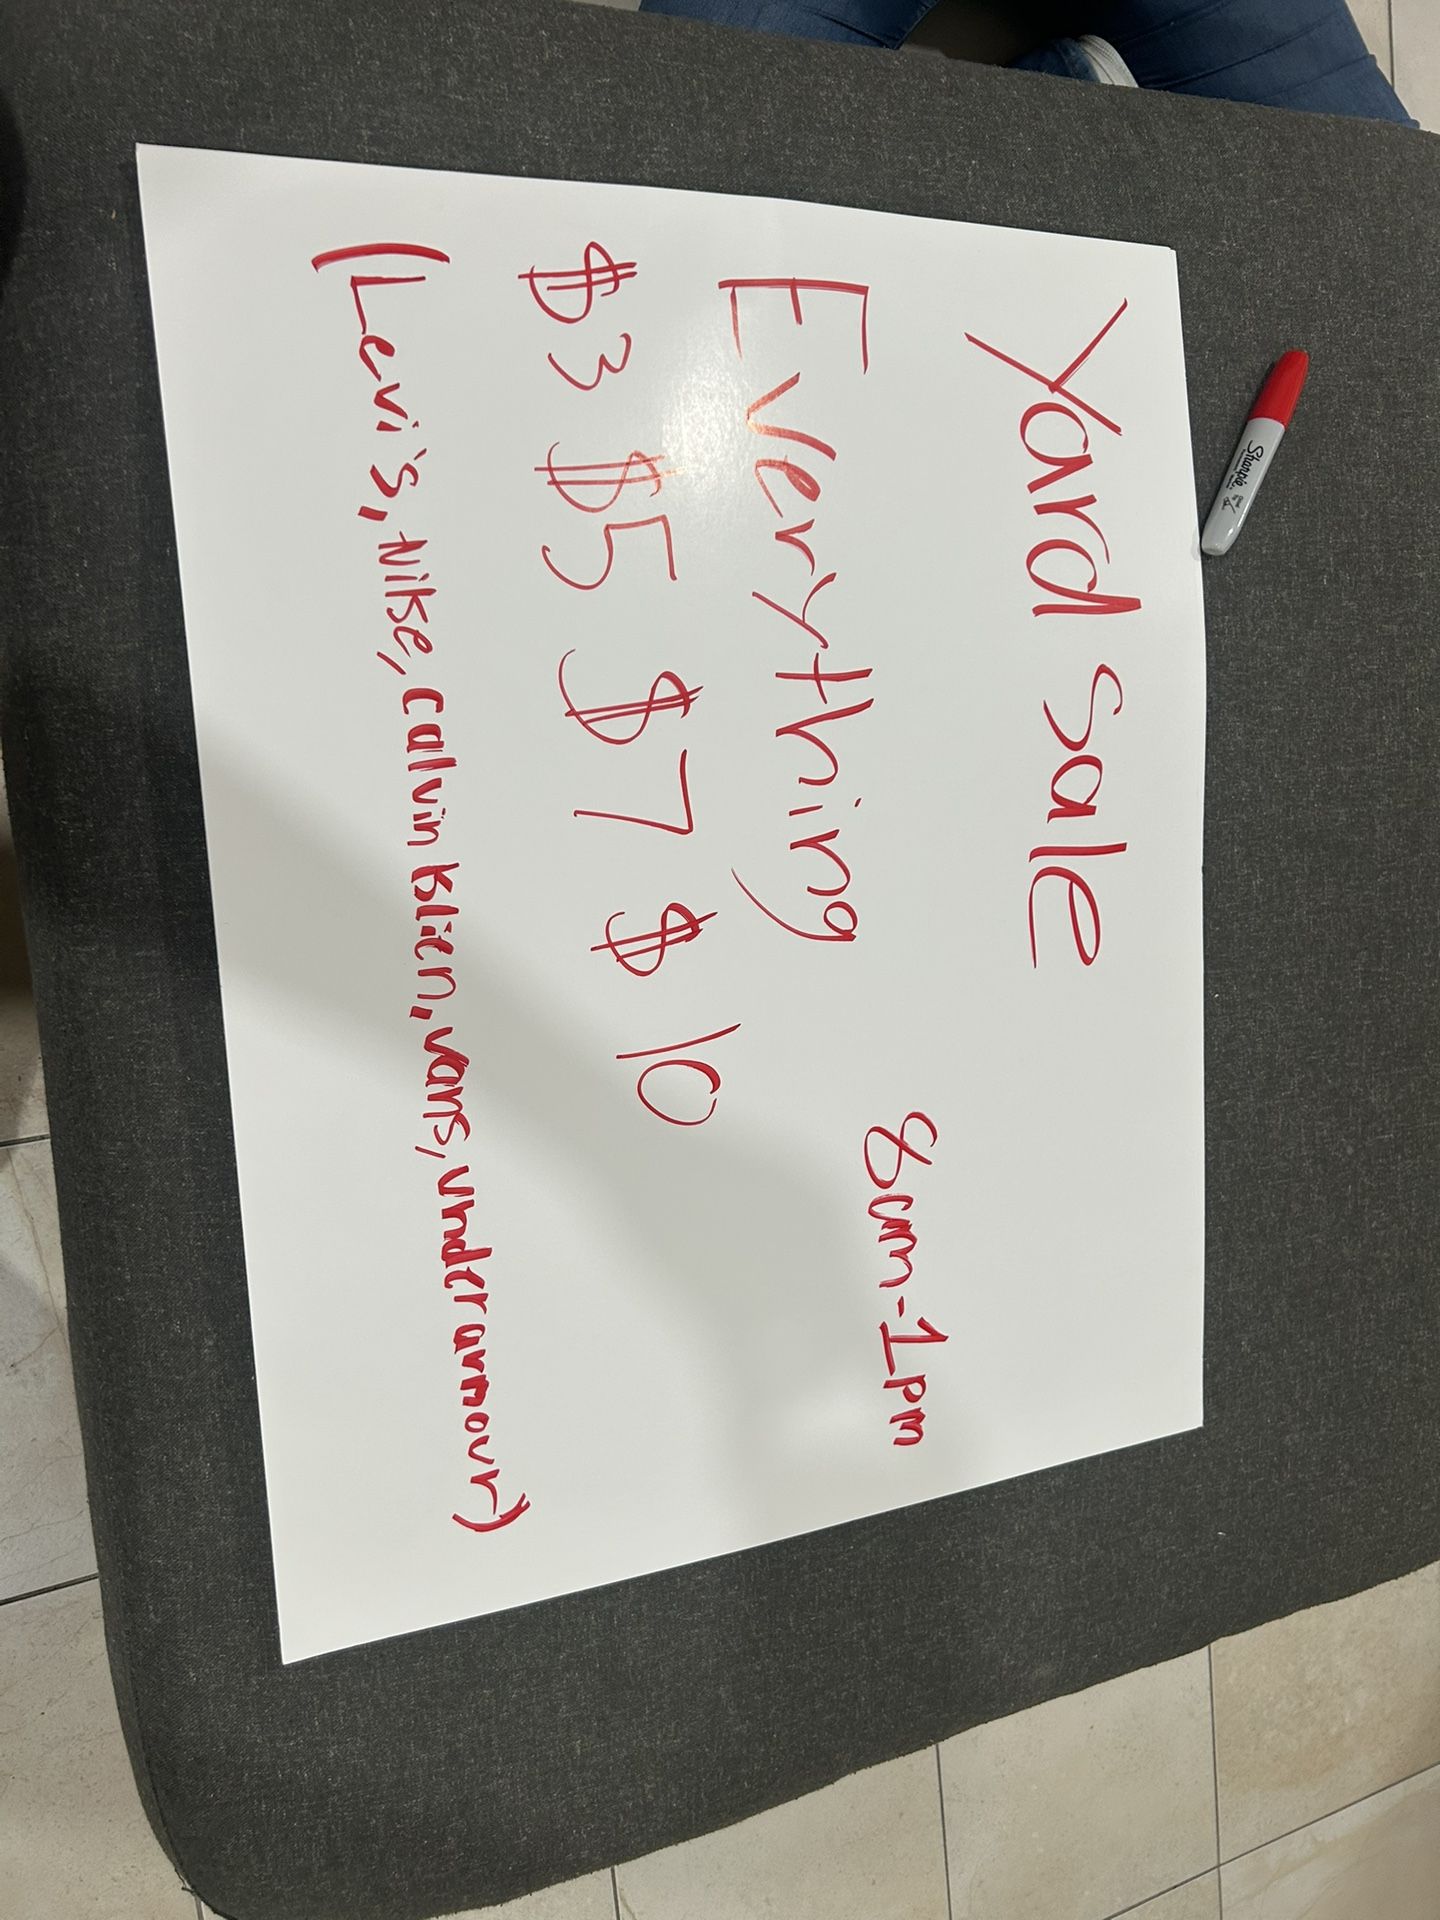 Yard sale
8am-1pm
Everything
$3 $5 $7 $10
(Levi's, Nike, Calvin Klien, vans, under armour)
Sharpie